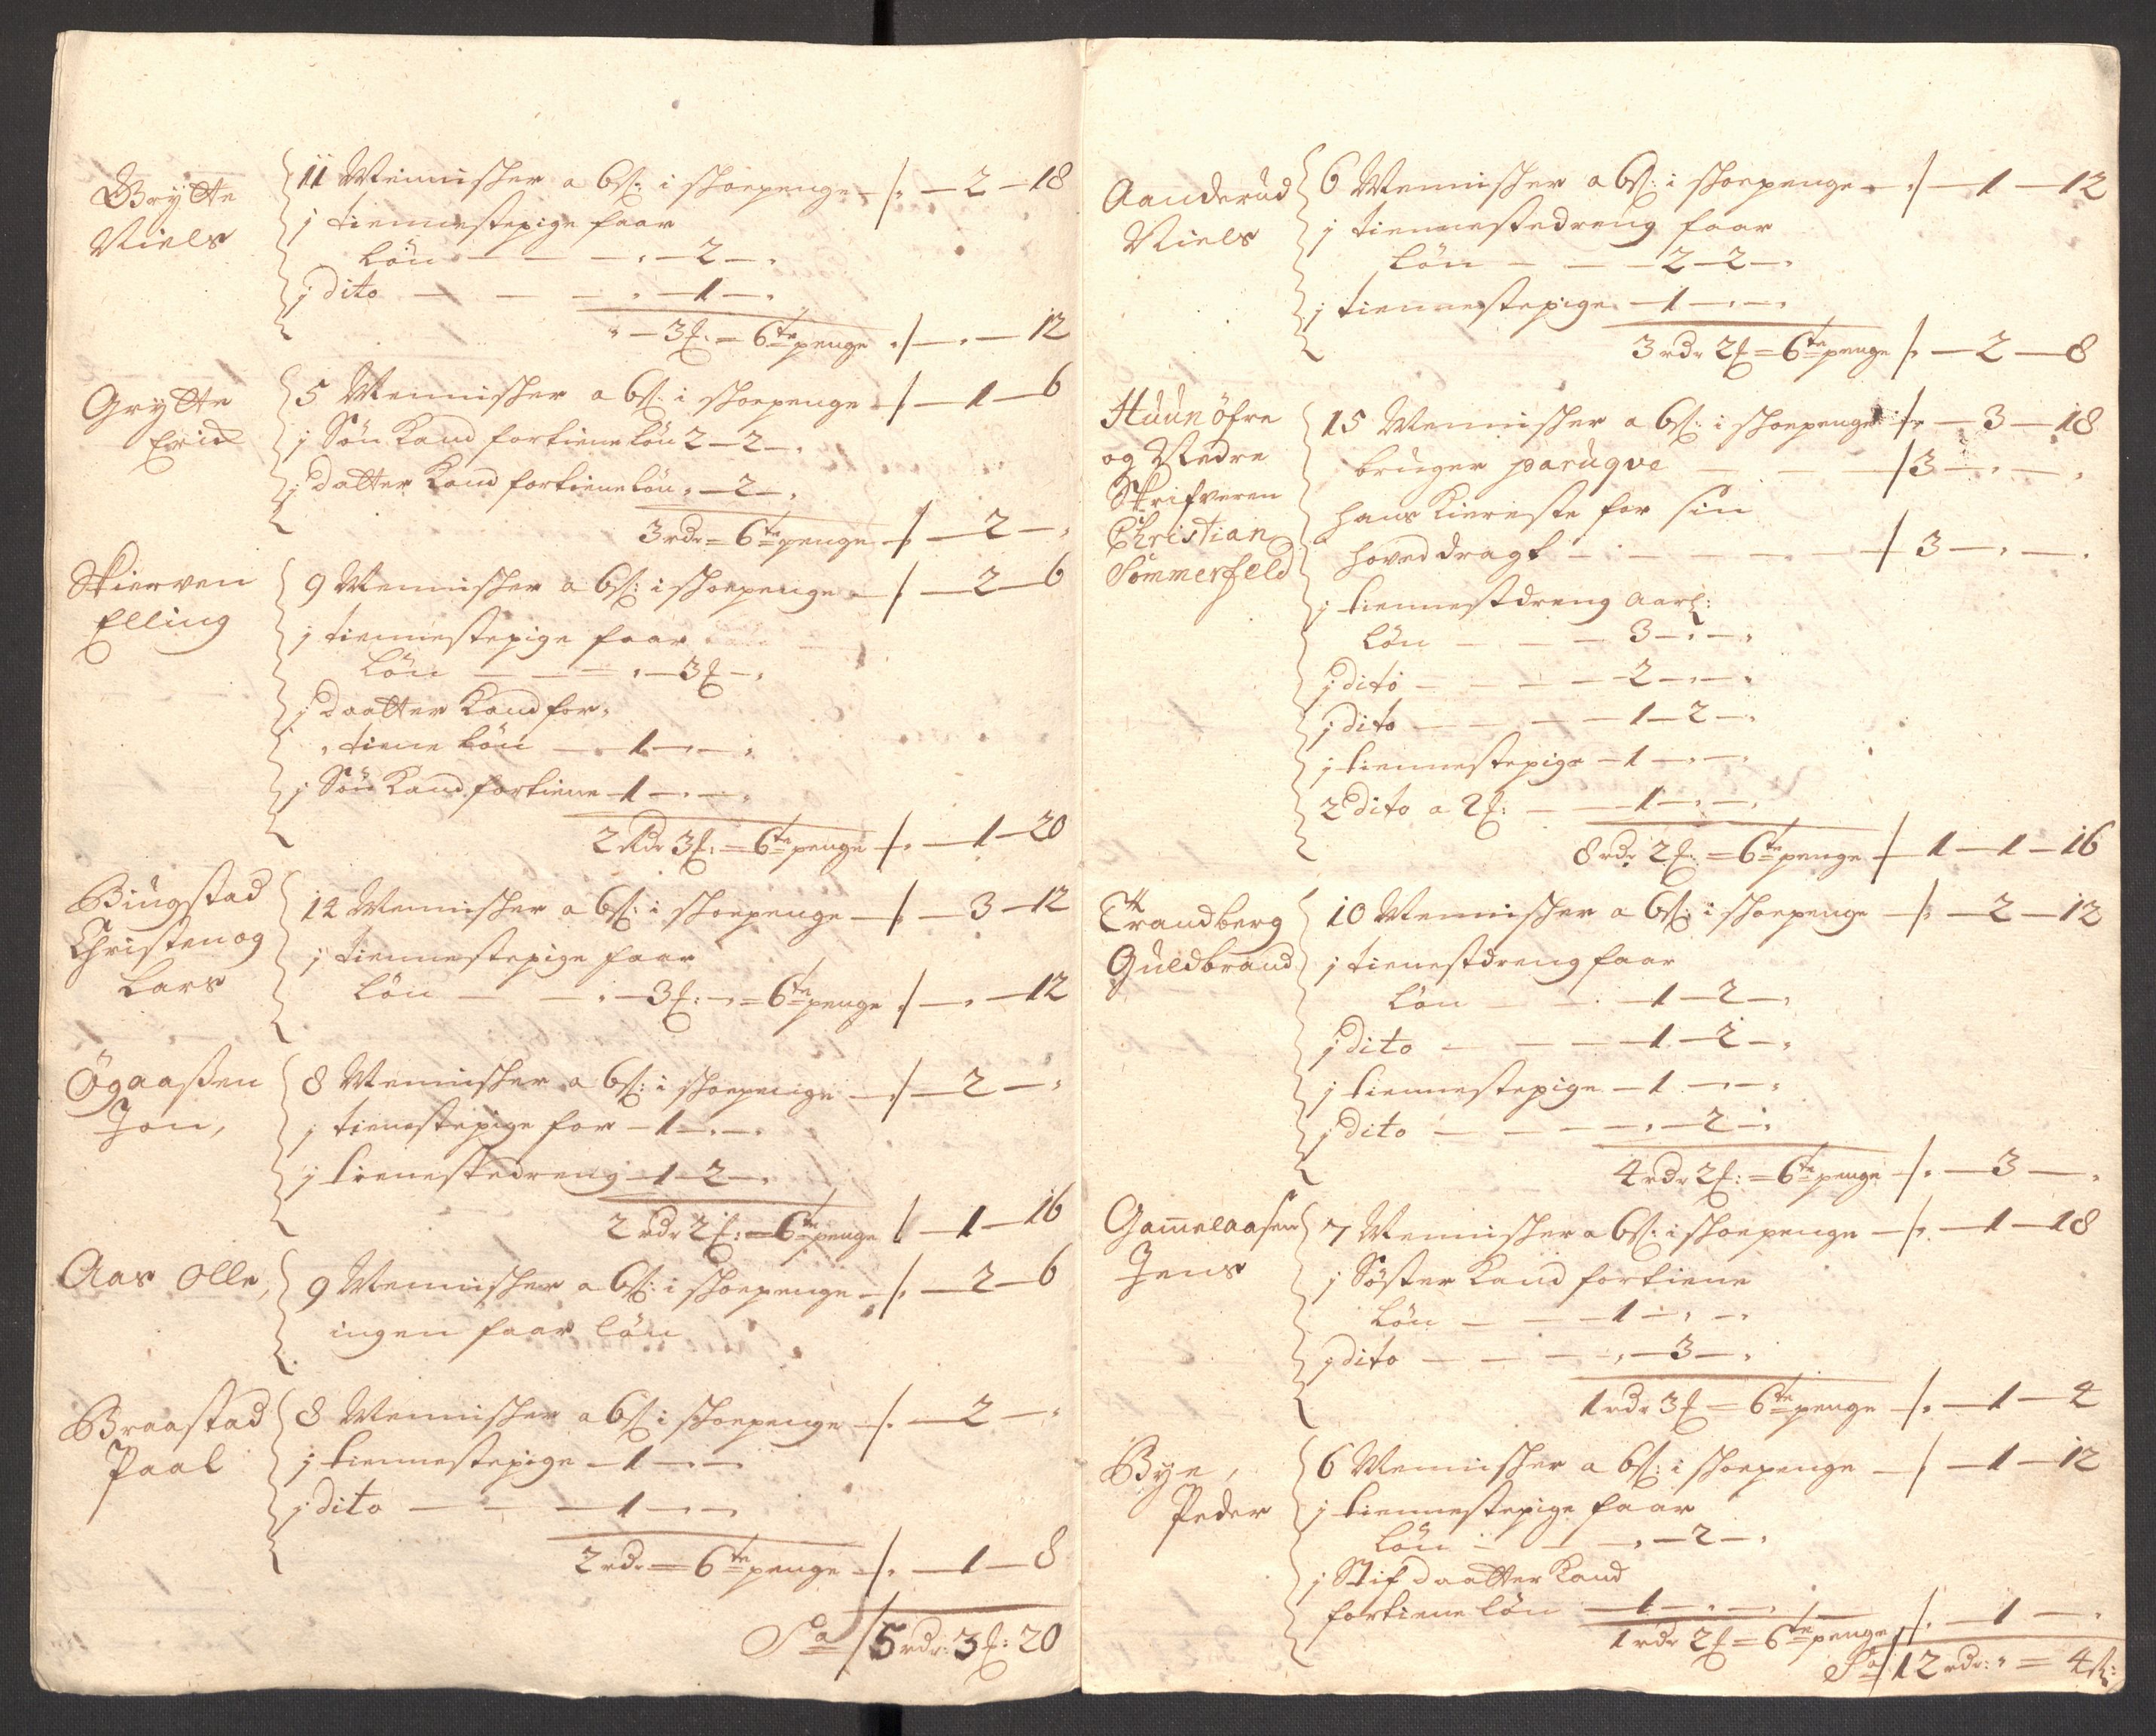 Grytte
Niels
11 Mennisker a 6s: i skoepenge ./. — 2 — 18
j tiennestepige faar
løn — — . — 2 — .
j dito — — — . — 1 — .
" — 3f: = 6te penge ./. — . — 12
Grytte
Erich
5 Mennisker a 6s: i skoepenge ./. — 1 — 6
j Søn Kand fortiene løn 2 — 2 — .
j datter Kand fortiene løn . — 2 — .
3 rdr = 6te penge ./. — 2 — .
Skierven
Elling
9 Mennisker a 6s: i skoepenge ./. — 2 — 6
j tiennestepige faar
løn — — — . — 3f — .
j daatter Kand for-
tiene løn — 1 — . — .
j Søn Kand fortiene — 1 — . — .
2 Rdr 3f: = 6te penge ./. — 1 — 20
Bingstad
Christen og
Lars
14 Mennisker a 6s: i skoepenge ./. — 3 — 12
j tiennestepige faar
løn — — . — 3f: — . = 6te penge ./. — . — 12
Ögaaßen
Jon,
8 Mennisker a 6s: i skoepenge ./. — 2 — .
j tienestepige for — 1 — . — .
j tienestedreng — 1 — 2 — .
2 rdr 2f: = 6te penge ./. — 1 — 16
Aas Olle,
9 Mennisker a 6s: i skoepenge ./. — 2 — 6
ingen faar løn
Braastad
Paal
8 Mennisker a 6s: i skoepenge ./. — 2 — .
j tiennestepige — 1 — . — .
j dito — — — 1 — . — .
2 rdr = 6te penge ./. — 1 — 8
Sa / 5 rdr: 3f: 20
Aanderud
Niels
6 Mennisker a 6s: i skoepenge ./. — 1 — 12
j tiennestedreng faar
løn — — — 2 — 2 — .
j tiennestepige — 1 — . — .
3 rdr 2f = 6te penge ./. — 2 — 8
Huun öfre
og Nedre
Skrifveren
Christian
Sommerfeld
15 Mennisker a 6s: i skoepenge ./. — 3 — 18
bruger paruqve — — — / 3 — . — .
hans Kiereste for sin
hoveddragt — — — — / 3 — . — .
j tiennestdreng aarl:
løn — — — 3 — . — .
j dito — — — — 2 — . — .
j dito — — — — 1 — 2 — .
j tiennestepige — 1 — . — .
2 dito a 2f: — — 1 — . — .
8 rdr 2f: = 6te penge / 1 — 1 — 16
Trandberg
Guldbrand
10 Mennisker a 6s: i skoepenge ./. — 2 — 12
j tienestdreng faar
løn — — . — 1 — 2 — .
j dito — — — — 1 — 2 — .
j tiennestepige — 1 — . — .
j dito — — — — . — 2 — .
4 rdr 2f: = 6te penge ./. — 3 — .
Gamelaasen
Jens
7 Mennisker a 6s: i skoepenge ./. — 1 — 18
j Søster Kand fortiene
løn — — — 1 — . — .
j dito — — — . — 3 — .
1 rdr 3f = 6te penge ./. — 1 — 4
Bye,
Peder
6 Mennisker a 6s: i skoepenge ./. — 1 — 12
j tiennestepige faar
løn — — — . — 2 — .
j Stif daatter Kand
fortiene løn — 1 — . — .
1 rdr 2f = 6te penge ./. — 1 — .
Sa / 12 rdr: " = 4s: